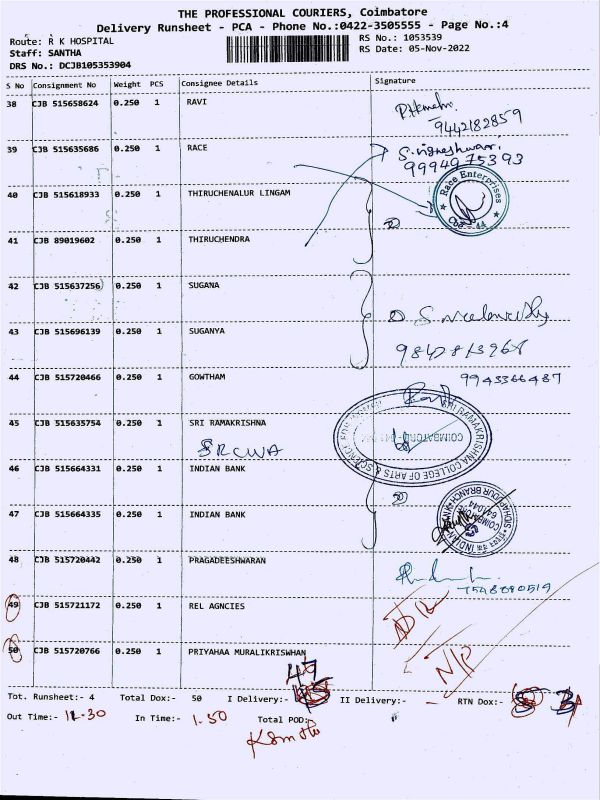 THE PROFESSIONAL COURIERS, Coimbatore
Delivery Runsheet - PCA - Phone No.:0422-3505555 - Page No.:4
Route: R K HOSPITAL
Staff: SANTHA
DRS No.: DCJB105353904
RS No.: 1053539
RS Date: 05-Nov-2022
S No Consignment No Weight PCS Consignee Details Signature
38 CJB 515658624 0.250 1 RAVI
9442182859
39 CJB 515635686 0.250 1 RACE S.vigneshwari
9994975393
40 CJB 515618933 0.250 1 THIRUCHENALUR LINGAM
Race Enterprises
Cbe - 44
41 CJB 89019602 0.250 1 THIRUCHENDRA
42 CJB 515637256 0.250 1 SUGANA
43 CJB 515696139 0.250 1 SUGANYA
9842813968
44 CJB 515720466 0.250 1 GOWTHAM 9943366487
45 CJB 515635754 0.250 1 SRI RAMAKRISHNA
SRCWA
SRI RAMAKRISHNA COLLEGE OF ARTS & SCIENCE FOR
COIMBATORE
46 CJB 515664331 0.250 1 INDIAN BANK
47 CJB 515664335 0.250 1 INDIAN BANK
INDIAN BANK
SIDHAPUDUR BRANCH
COIMBATORE
641044
48 CJB 515720442 0.250 1 PRAGADEESHWARAN
7548890519
49 CJB 515721172 0.250 1 REL AGNCIES
50 CJB 515720766 0.250 1 PRIYAHAA MURALIKRISWHAN
N/P
47
Tot. Runsheet:- 4 Total Dox:- 50 I Delivery:- II Delivery:- - RTN Dox:- 3
Out Time:- 11.30 In Time:- 1.50 Total POD: